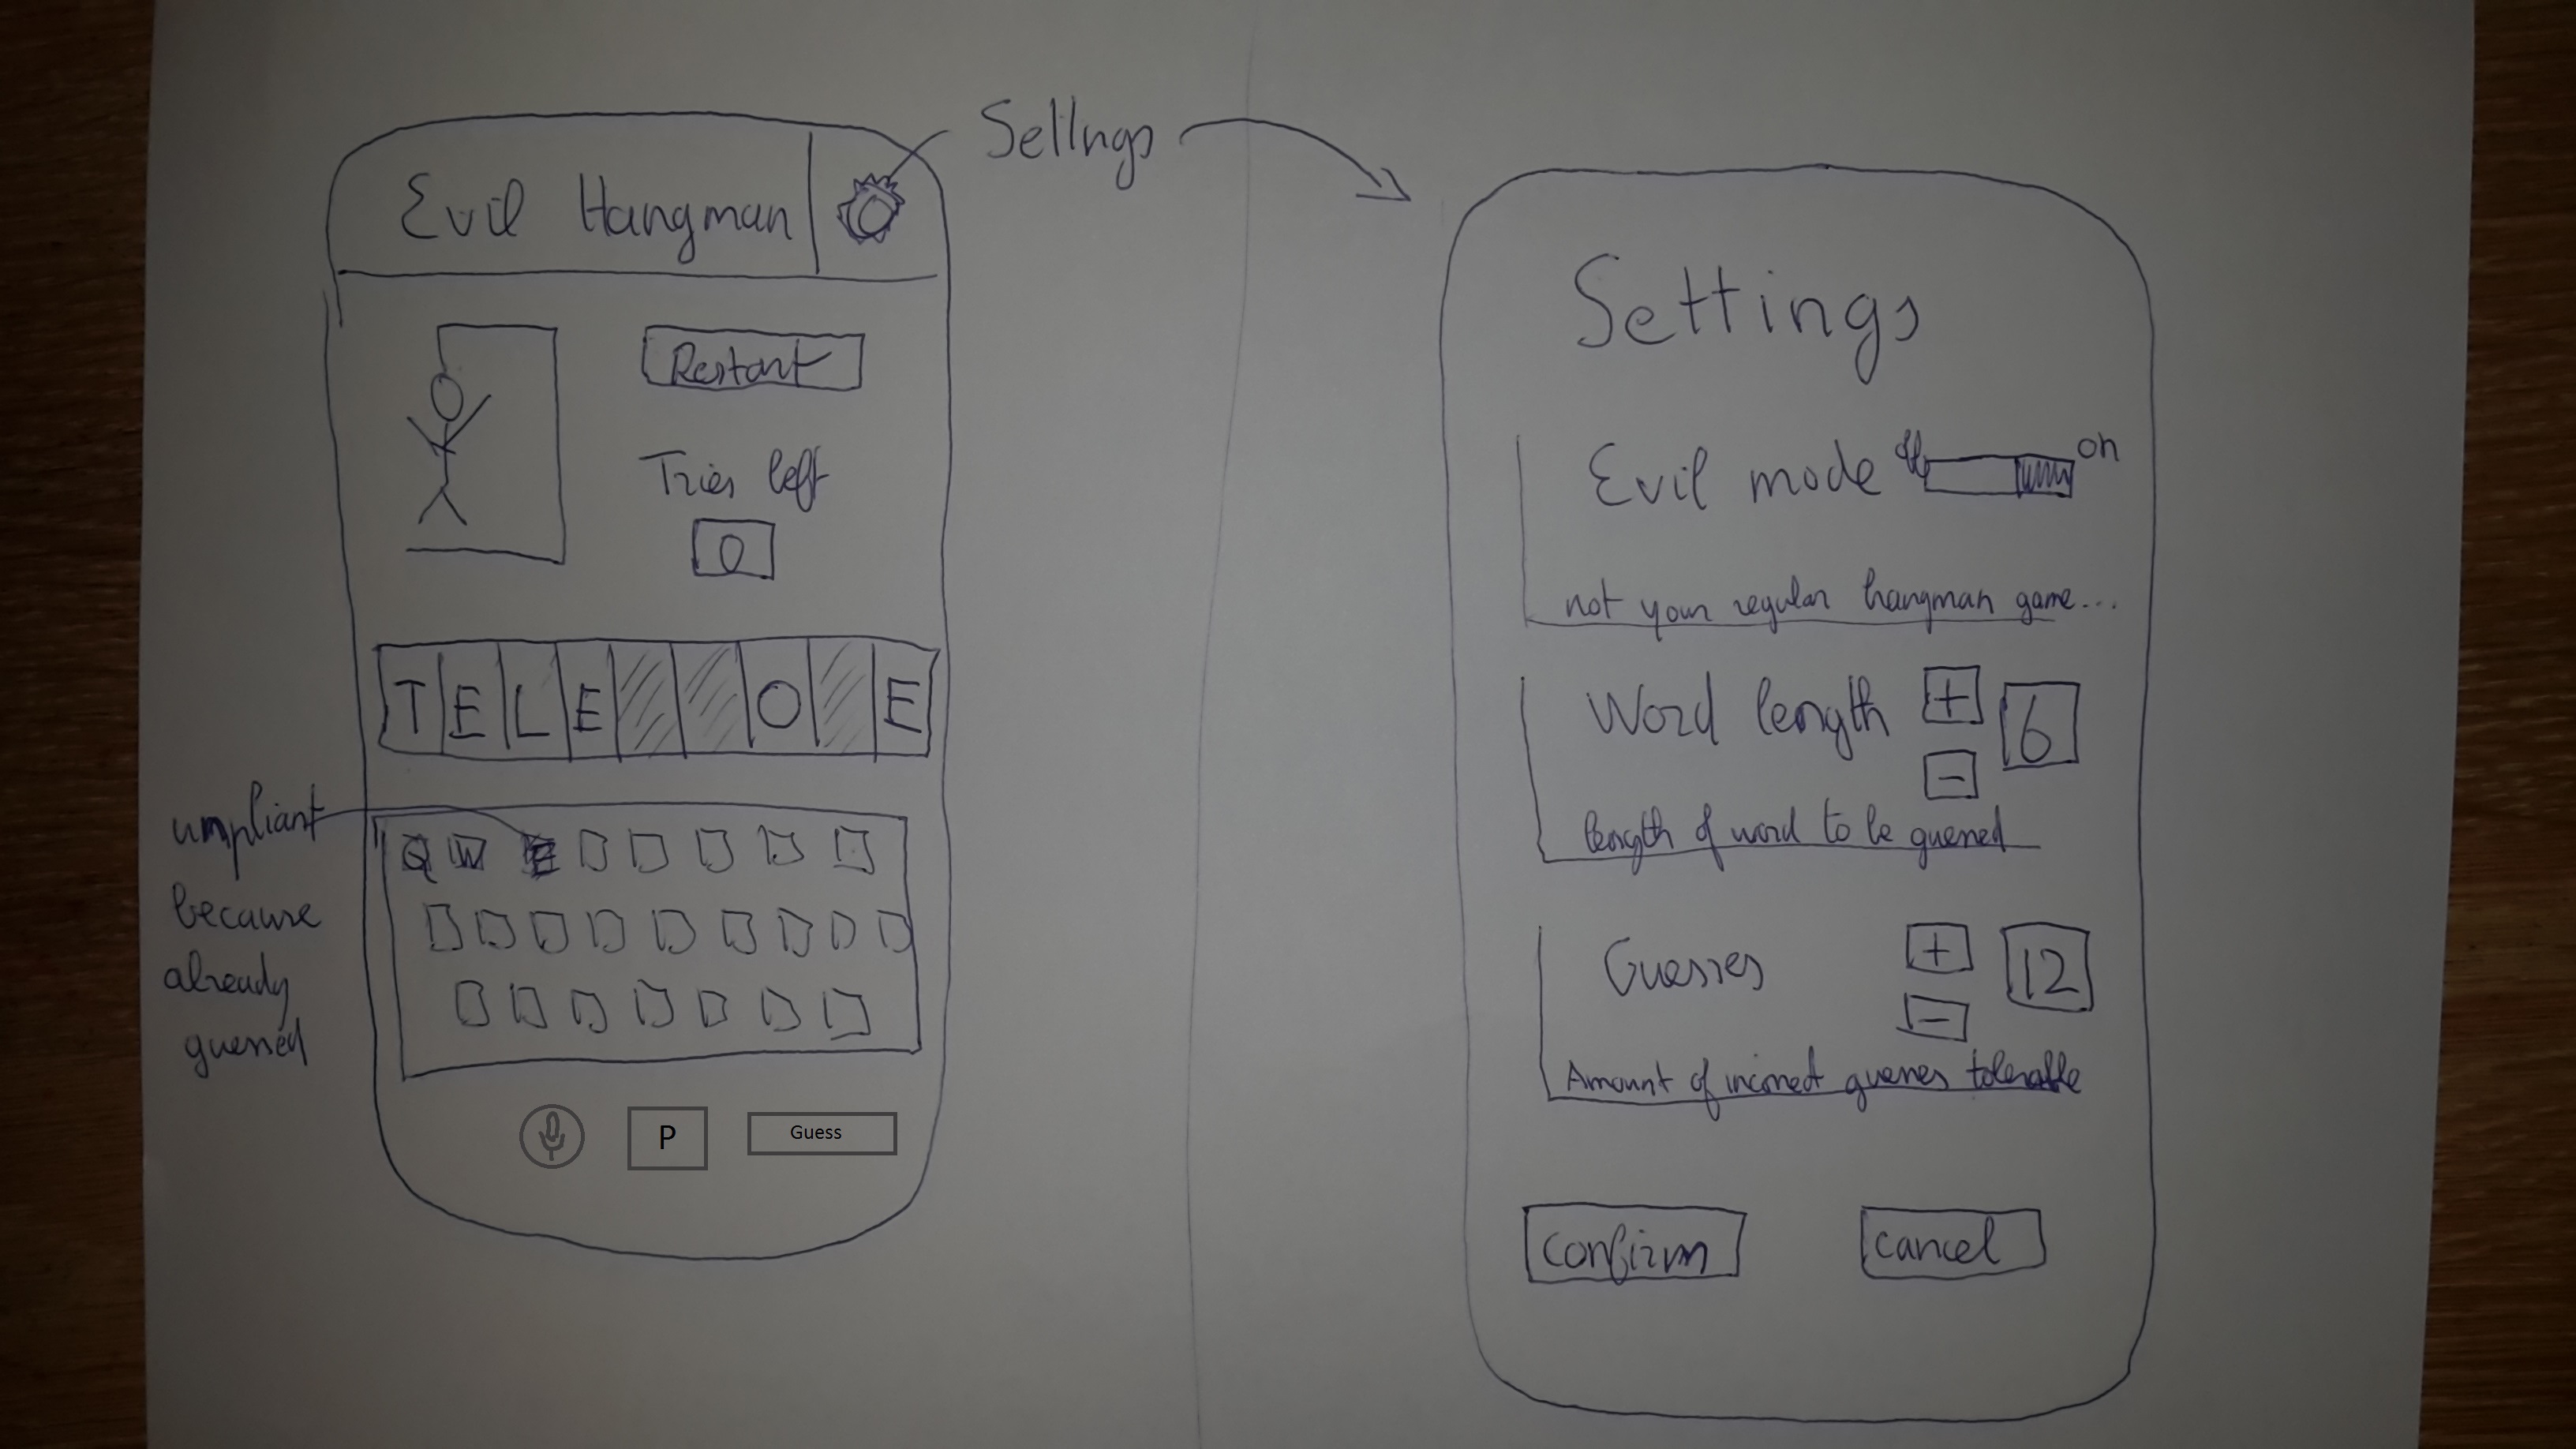 Settings
Evil Hangman
Restart
Tries left
0
T E L E O E
umpliant
because
already
guessed
Q W E
P
Guess
Settings
Evil mode off on
not your regular hangman game...
Word length + 6
-
length of word to be guessed
Guesses + 12
-
Amount of incorrect guesses tolerable
confirm cancel